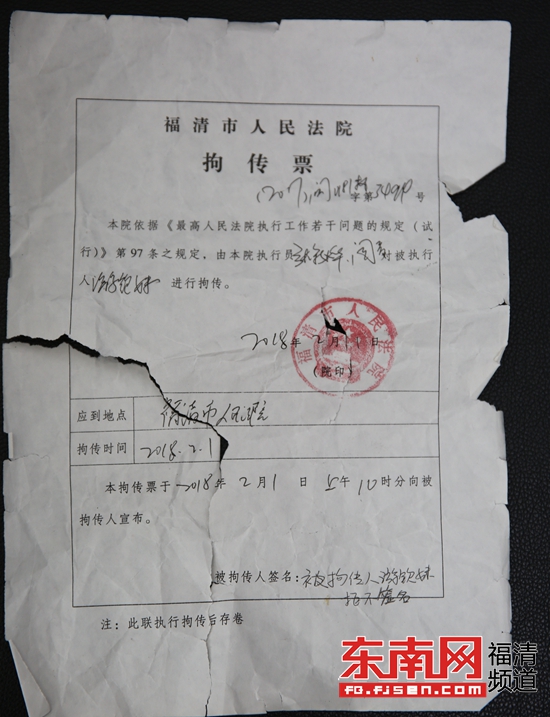 福清市人民法院
拘传票
字第 号
本院依据《最高人民法院执行工作若干问题的规定（试
行）》第97条之规定，由本院执行员 对被执行
人 进行拘传。
福清市人民法院
2018年2月1日
（院印）
应到地点 福清市人民法院
拘传时间 2018.2.1
本拘传票于2018年2月1日上午10时分向被
拘传人宣布。
被拘传人签名：被拘传人
拒不签名
注：此联执行拘传后存卷
东南网 福清频道
FQ.FJSEN.COM